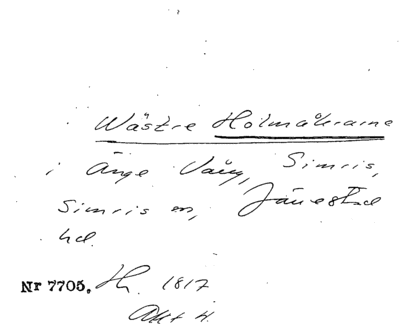 Wästre Holmåkrarne
i Änge Vång, Simris,
Simris sn, Järrestad
hd.
Nr 7705. Hh. 1817
Akt 4.